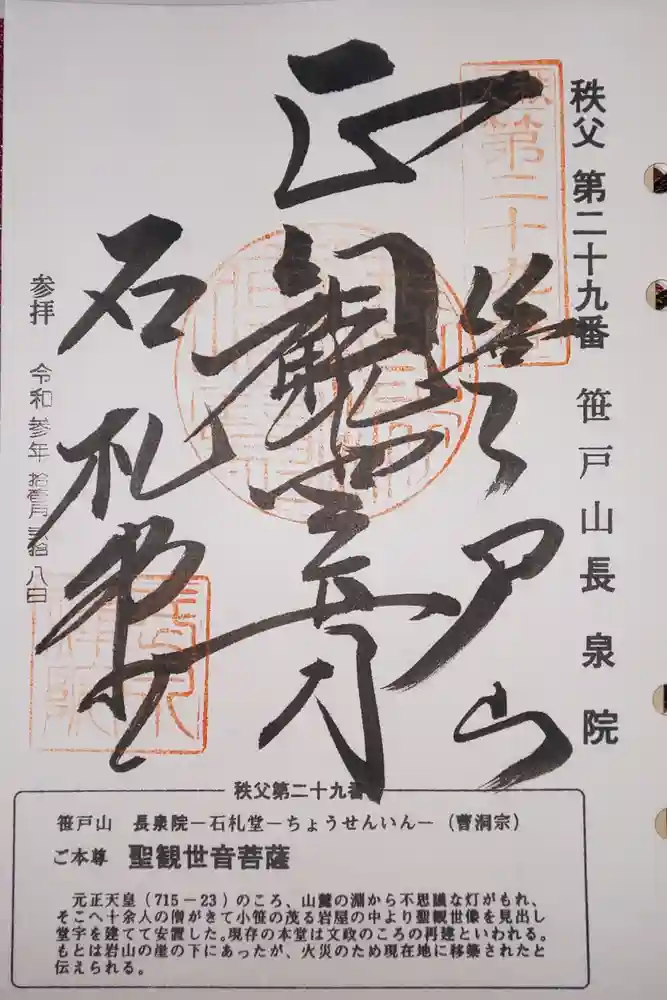 秩父 第二十九番 笹戸山長泉院
第二十九
笹戸山
正観世音
石札堂
参拝 令和参年拾壱月弐拾八日
秩父第二十九番
笹戸山 長泉院－石札堂－ちょうせんいん－（曹洞宗）
ご本尊 聖観世音菩薩
元正天皇（715－23）のころ、山麓の淵から不思議な灯がもれ、
そこへ十余人の僧がきて小笹の茂る岩屋の中より聖観世像を見出し
堂宇を建てて安置した。現存の本堂は文政のころの再建といわれる。
もとは岩山の崖の下にあったが、火災のため現在地に移築されたと
伝えられる。